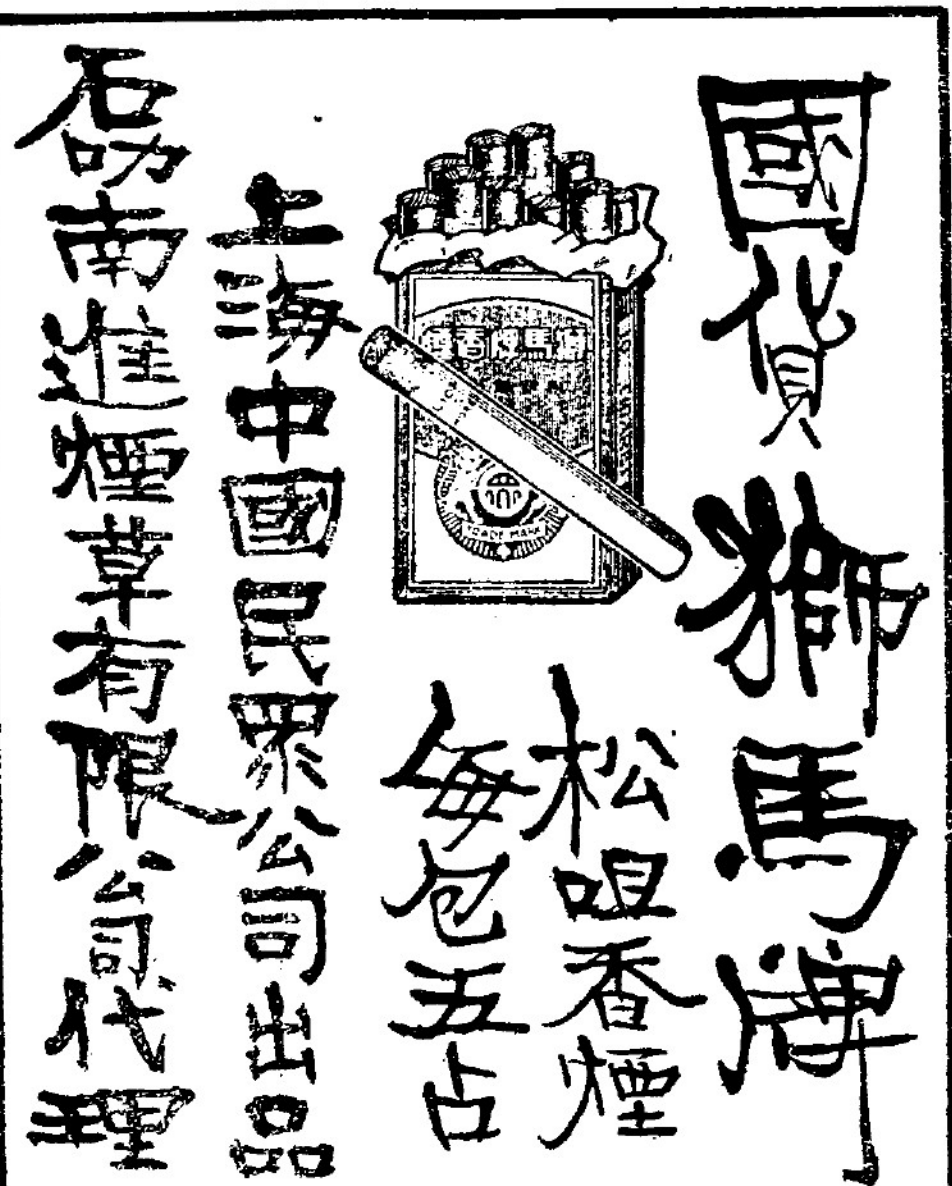 國貨獅馬牌
松咀香煙
每包五占
獅馬牌香煙
TRADE MARK
上海中國民眾公司出品
磂南進煙草有限公司代理